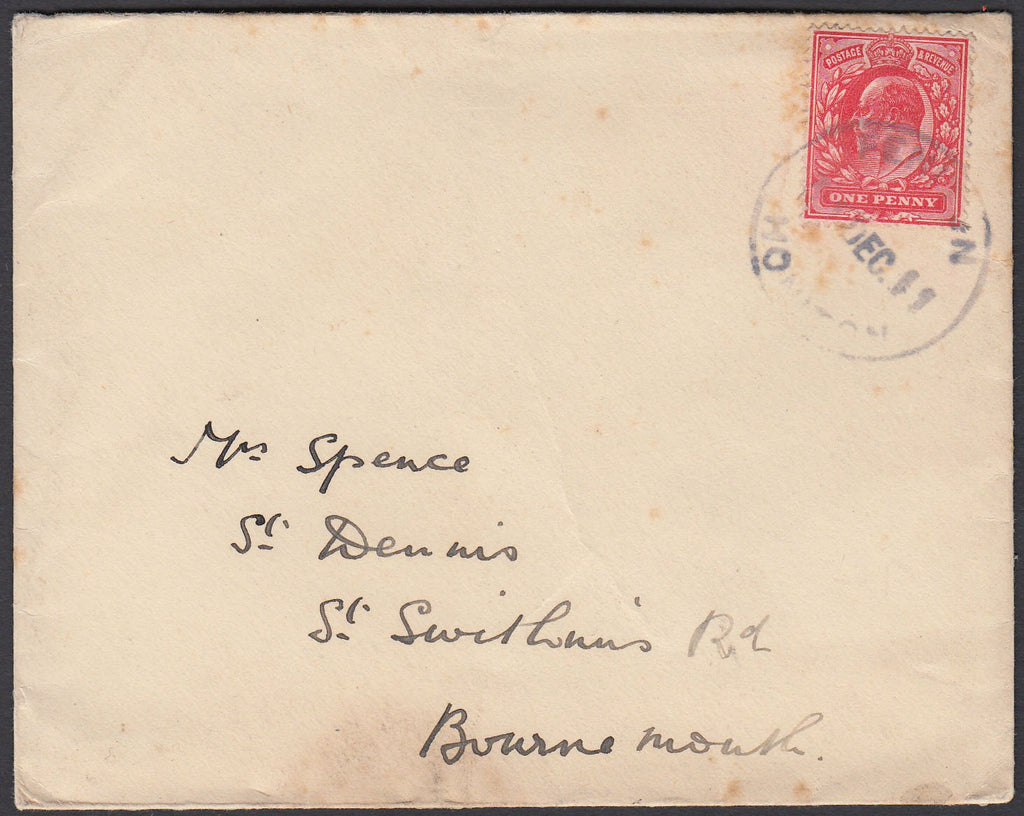 POSTAGE & REVENUE
ONE PENNY
DEC. 11
Mrs Spence
St. Dennis
St. Swithuns Rd
Bournemouth.